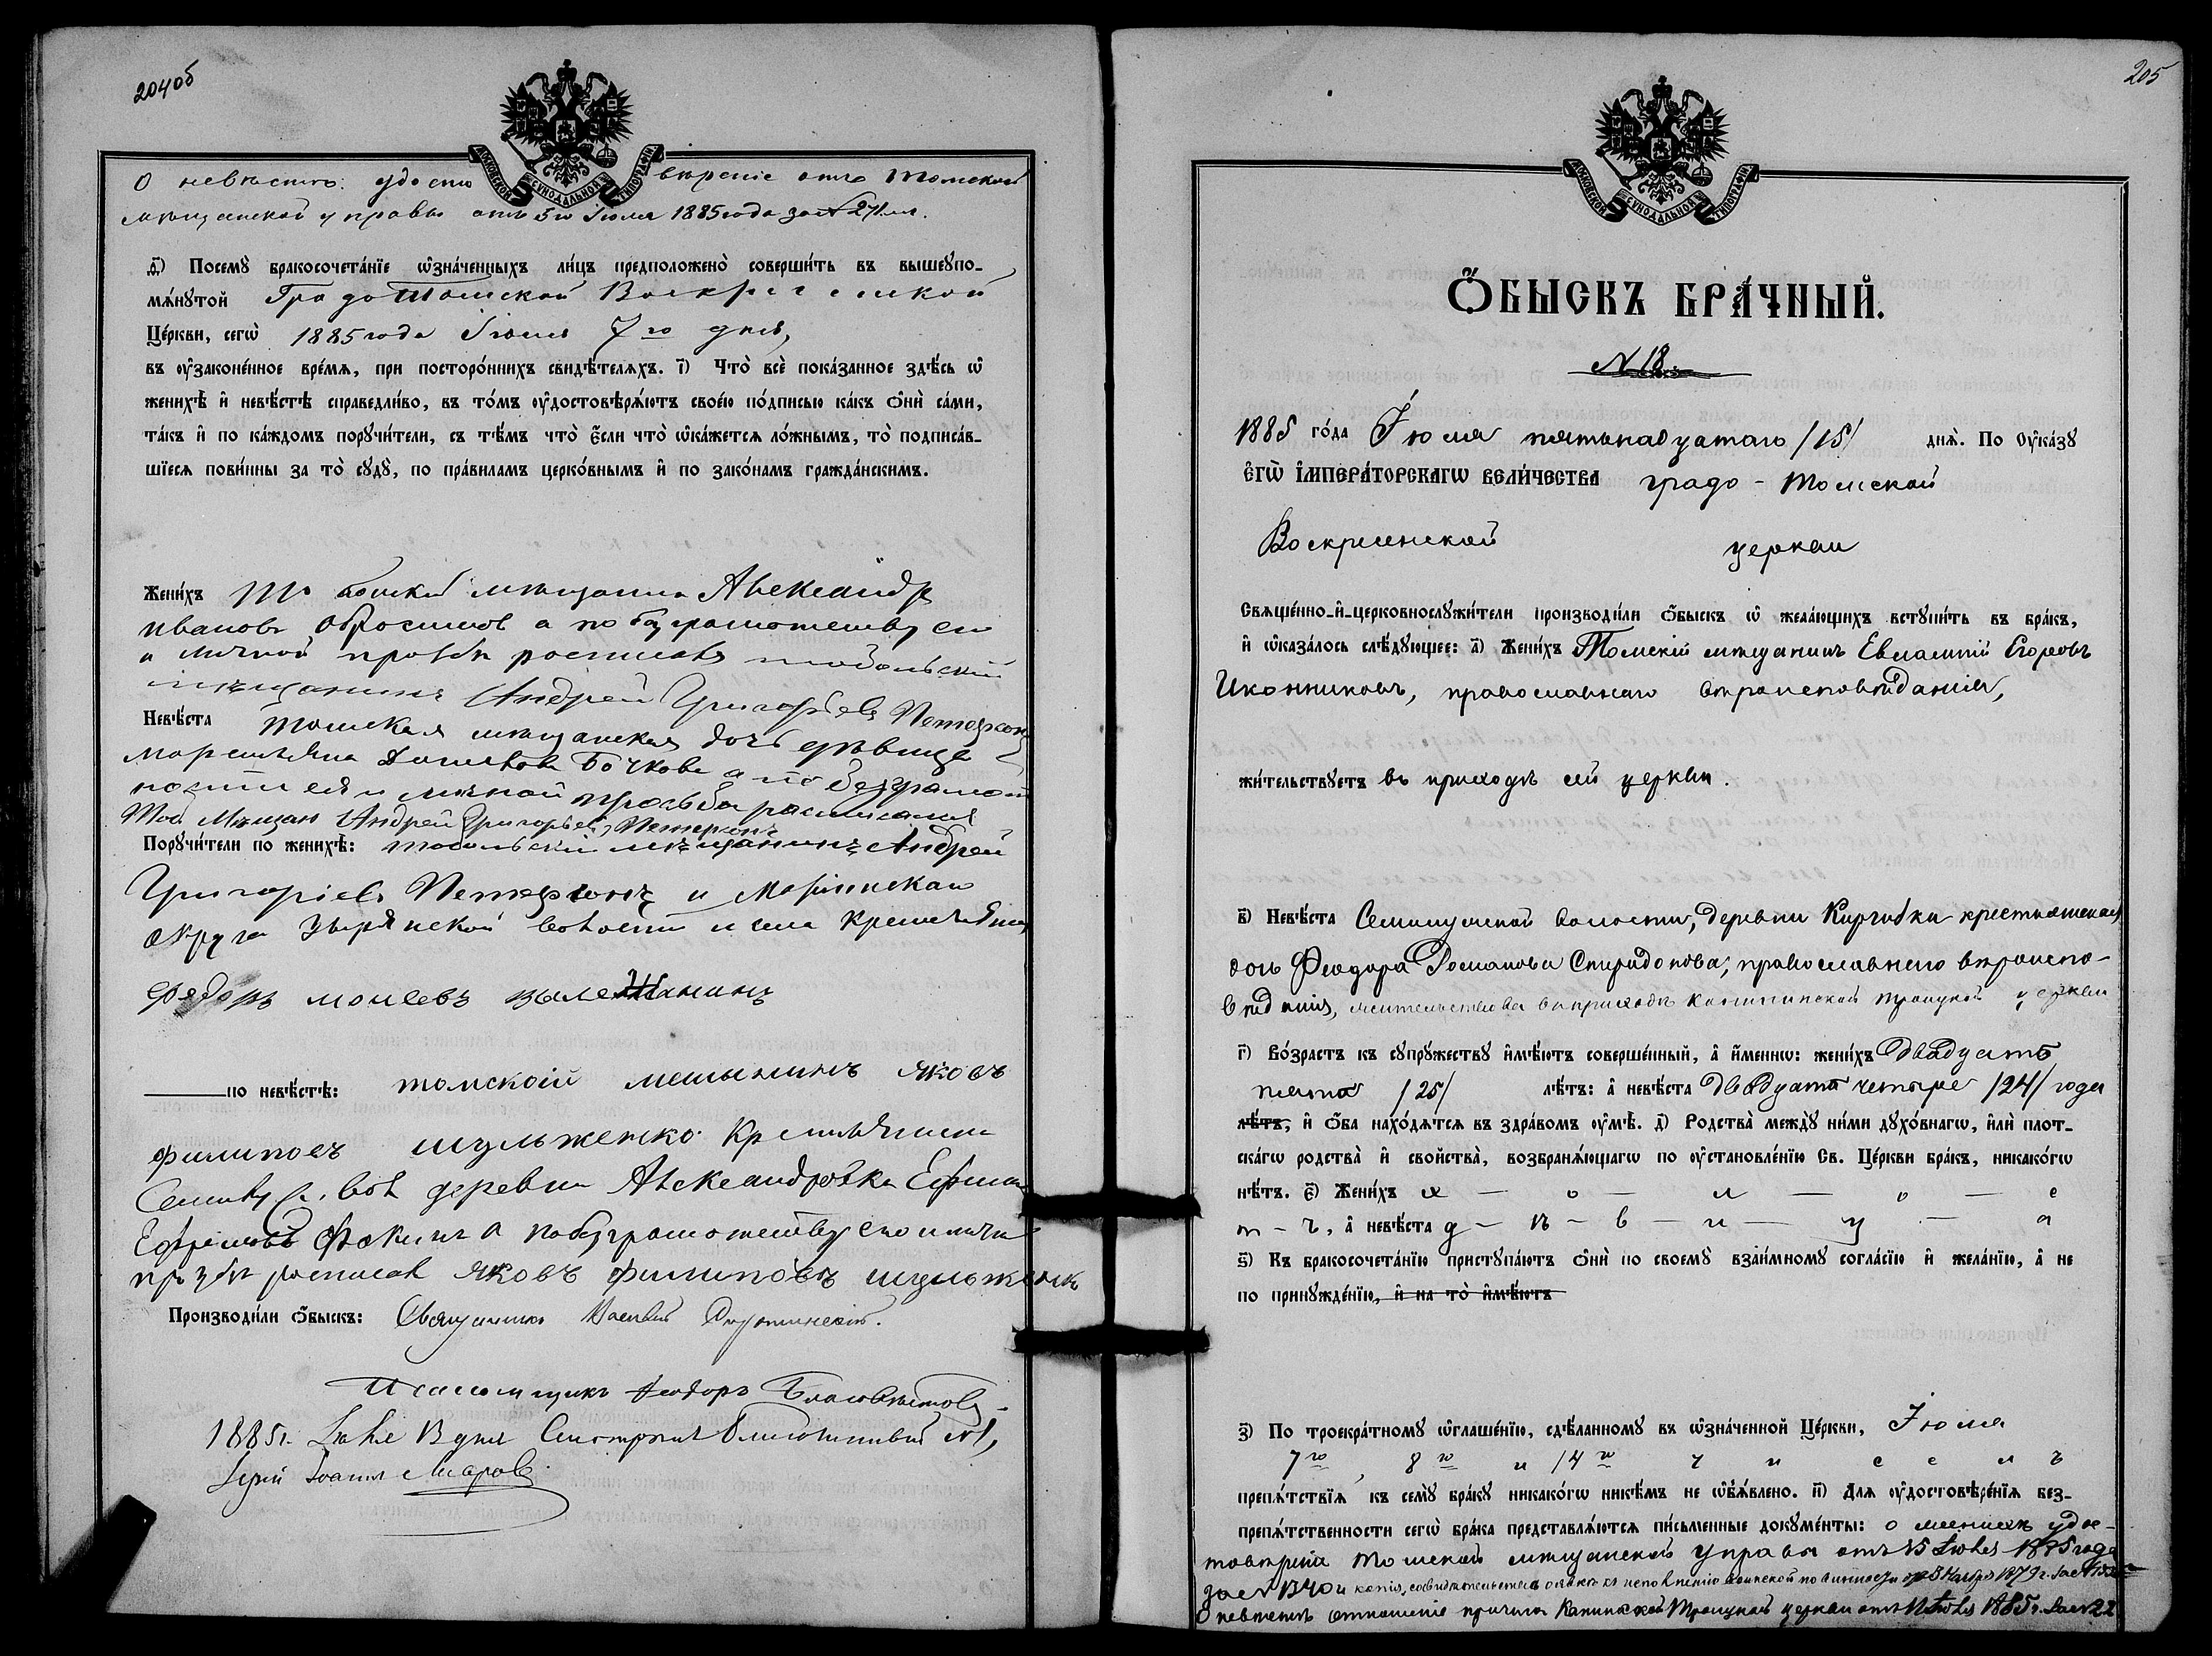 204об
МОСКОВСКОЙ СѴНОДАЛЬНОЙ ТИПОГРАФІИ
О невѣстѣ: удосто вѣреніе отъ Томской
мѣщанской управы отъ 5го Іюля 1885 года за № 2711.
д҃і) Посемꙋ̀ бракосочета́нїе ѡ҆зна́ченныхъ ли́цъ предположено̀ соверши́ть въ вышеꙋпо-
мѧ́нꙋтой Градо Томской Воскресенской
Це́ркви, сегѡ̀ 1885 года Іюля 7го дня,
въ ᲂу҆законе́нное вре́мѧ, при посторо́ннихъ свидѣ́телѧхъ. і҃) Что̀ всѐ пока́занное здѣ́сь ѡ҆
женихѣ̀ и҆ невѣ́стѣ справедли́во, въ то́мъ ᲂу҆достовѣрѧ́ютъ свое́ю по́дписью ка́къ ѻ҆нѝ са́ми,
та́къ и҆ по ка́ждомъ порꙋчи́тели, съ тѣ́мъ что̀ є҆́сли что̀ ѡ҆ка́жетсѧ ло́жнымъ, то̀ подписа́в-
шїесѧ пови́нны за то̀ сꙋдꙋ̀, по пра́виламъ церко́внымъ и҆ по зако́намъ гражда́нскимъ.
Жени́хъ мѣщанинъ Александръ
Ивановъ Абросимов а по безграмотству его
и личной прозбѣ росписався тобольский
мѣщанинъ Андрей Григорьевъ Петерсонъ
Невѣ́ста Томская мѣщанская дочь дѣвица
Бочкова а по безграмот
ности ея и личной прозьбы расписался
Тоб. Мѣщан Андрей Григорьевъ Петерсонъ
Порꙋчи́тели по женихѣ̀: тобольскій мѣщанинъ Андрей
Григоріевъ Петерсонъ и Маріинскаго
округа Зырянской волости и села крестьянинъ
Федоръ моисевъ
по невѣ́стѣ: томскоій мешынинъ яковъ
филиповъ шульженко Крестьянинъ
вол деревни Александровка Ефимъ
Ефремовъ Фокинъ а по безграмотству его и лични
прозбы росписав яковъ филиповъ шульженк
Производи́ли ѻ҆́быскъ: Священникъ Василій
Псаломщикъ Феодоръ Благовѣстовъ
1885 г. Іюля 13 дня Смотрилъ Благочинный № 1,
Іерей Іоаннъ
205
МОСКОВСКОЙ СѴНОДАЛЬНОЙ ТИПОГРАФІИ
Ѻ҆́БЫСКЪ БРА́ЧНЫЙ.
№ 18
1885 го́да Іюля пятьнадцатаго /15/ днѧ̀. По ᲂу҆ка́зꙋ
є҆гѡ̀ і҆мпера́торскагѡ вели́чества градо-Томской
Воскресенской церкви
Свѧще́нно-и҆-церковнослꙋжи́тели производи́ли ѻ҆́быскъ ѡ҆ жела́ющихъ встꙋпи́ть въ бра́къ,
и҆ ѡ҆каза́лось слѣ́дꙋющее: а҃) Жени́хъ Томскій мѣщанинъ Евлампій Егоровъ
Иконниковъ, православнаго вѣроисповѣданія,
жи́тельствꙋетъ въ приходѣ сей церкви.
в҃) Невѣ́ста волости, деревни Киргизки крестьянская
дочь Феодора Романова Спиридонова, православнаго вѣроиспо-
вѣданія, жительствова въ приходѣ Каштинской Троицкой церкви
г҃) Во́зрастъ къ сꙋпрꙋ́жествꙋ и҆мѣ́ютъ соверше́нный, а҆ и҆́меннѡ: жени́хъ двадцать
пять /25/ лѣ́тъ: а҆ невѣ́ста двадцать четыре /24/ года
лѣ́тъ, и҆ ѻ҆́ба нахо́дѧтсѧ въ здра́вомъ ᲂу҆мѣ̀. д҃) Родства̀ междꙋ̀ ни́ми дꙋхо́внагѡ, и҆лѝ плот-
ска́гѡ родства̀ и҆ сво́йства, возбранѧ́ющагѡ по ᲂу҆становле́нїю Св. Це́ркви бра́къ, никако́гѡ
нѣ́тъ. є҃) Жени́хъ х — о — л — о — с
т — ъ, а҆ невѣ́ста д — ѣ — в — и — ц — а
ѕ҃) Къ бракосочета́нїю пристꙋпа́ютъ ѻ҆нѝ по своемꙋ̀ взаи́мномꙋ согла́сїю и҆ жела́нїю, а҆ не
по принꙋжде́нїю, и҆ на то̀ и҆мѣ́ютъ
з҃) По троекра́тномꙋ ѡ҆глаше́нїю, сдѣ́ланномꙋ въ ѡ҆зна́ченной Це́ркви, Іюля
7го, 8го и 14го ч и с е л ъ
препѧ́тствїѧ къ семꙋ̀ бра́кꙋ никако́гѡ никѣ́мъ не ѡ҆б̾ѧ́влено. и҃) Длѧ ᲂу҆достовѣре́нїѧ без-
препѧ́тственности сегѡ̀ бра́ка представлѧ́ютсѧ пи́сьменные докꙋме́нты: о женихѣ удос-
товѣреніе Томской мѣщанской управы отъ 15 Іюля 1885 года
за № и копія, свидѣтельства о явкѣ къ исполненію воинской повинности 1879 г. за №
О невѣстѣ отношеніе причта Троицкой церкви отъ Іюля 1885 г. за № 22